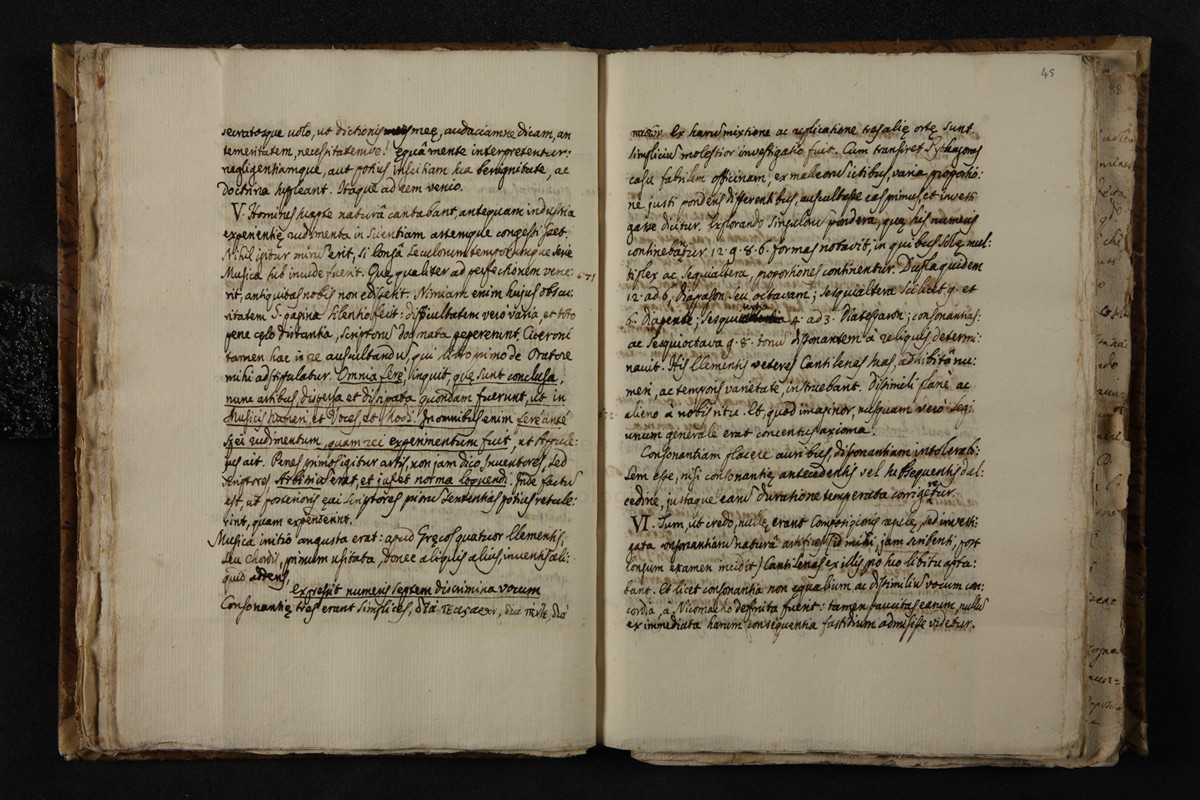 secratosque uolo, ut dictionis meę, audaciamne dicam, an
temeritatem, necessitatemve! ęquâ mente interpretentur:
negligentiamque, aut potius inscitiam sua benignitate, ac
Doctrina suppleant. Itaque ad rem venio.
V. Homines suapte naturâ cantabant, antequam industria
experientię rudimenta in Scientiam artemque congessisset.
Nihil igitur mirũ erit, si longâ seculorum temporumque serie
Musica sub incude fuerit. Quę, qualiter ad perfectionem vene:
rit, antiquitas nobis non edisserit. Nimiam enim hujus obscu:
ritatem S. pagina silentio fecit: difficultatem vero varia, et toto
pene cęlo distantia, scriptorũ dogmata pepererunt. Ciceroni
tamen hac in re auscultandũ, qui libro primo de Oratore
mihi adstipulatur. Omnia ferè, inquit, quę sunt conclusa,
nunc artibus, dispersa et dissipata quondam fuerunt, ut in
Musicis Numeri, et Voces, et Modi. In omnibus enim ferè ante
rei rudimentum, quam rei experimentum fuit, ut Apule:
jus ait. Penes primos igitur artis, non jam dico, Inventores, sed
scriptores Arbitriũ erat, et jus, et norma loquendi. Inde factũ
est, ut posteriores ęvi scriptores priorũ sententias potius retule:
rint, quam expenderint.
Musica initio angusta erat: apud Gręcos quatuor Elementis,
seu Chordis, primum usitata, donec aliquis alius, inventis ali:
quid addens,
expressit numeris septem discrimina vocum
Consonantię tres erant simplices, διὰ τεσσάρων, δια πέντε, διὰ
45
πασῶν. Ex harũ mixtione ac replicatione tres alię ortę sunt.
Simplicium molestior investigatio fuit. Cum transiret Pythagoras
casu fabrilem officinam; ex malleorũ ictibus, varia proportio:
ne justi ponderis differentibus, auscultasse eas primus, et investi
gasse dicitur. Explorando singulorũ pondera, quę his numeris
continebantur 12. 9. 8. 6. formas notavit, in quibus solę mul:
tiplex ac sesquialtera, proportiones continentur. Dupla quidem
12. ad 6, diapason seu octavam; sesquialtera scilicet 9. et
6. diapente; sesquitertia 4. ad 3. diatessaron; consonantias:
ac sesquioctava 9. 8. tonũ dissonantem à reliquis determi:
navit. His Elementis veteres Cantilenas suas, adhibitâ nu:
meri, ac temporis varietate, instruebant. Dissimili planè ac
alieno a nobis ritu. Et quod imaginor, nusquam vero legi
unum generale erat concentus axioma.
Consonantiam placere auribus, dissonantiam intolerabi:
lem esse, nisi consonantię antecedentis vel subsequentis dul:
cedine, justaque earũ duratione temperata corrigeretur.
VI. Tum, ut credo, nullę erant Compositionis regulę, sed investi:
gata consonantiarũ naturâ artifices (id mihi, jam scribenti, for:
Cantilenas ex illis pro suo libitu apta:
bant. Et licet consonantia non equalium ac dissimiliũ vocum con:
cordia, a Nicomacho definita fuerit: tamen paucitas earum, nullũ
ex immediata harum consequentia fastidium admisisse videtur.